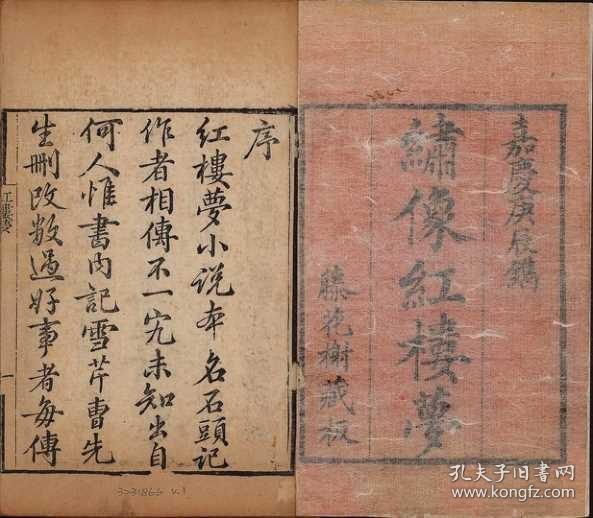 嘉慶庚辰鐫
繡像紅樓夢
藤花榭藏板
序
紅樓夢小说本名石頭記
作者相傳不一究未知出自
何人惟書内記雪芹曹先
生刪改数過好事者每傳
一
孔夫子旧书网
www.kongfz.com